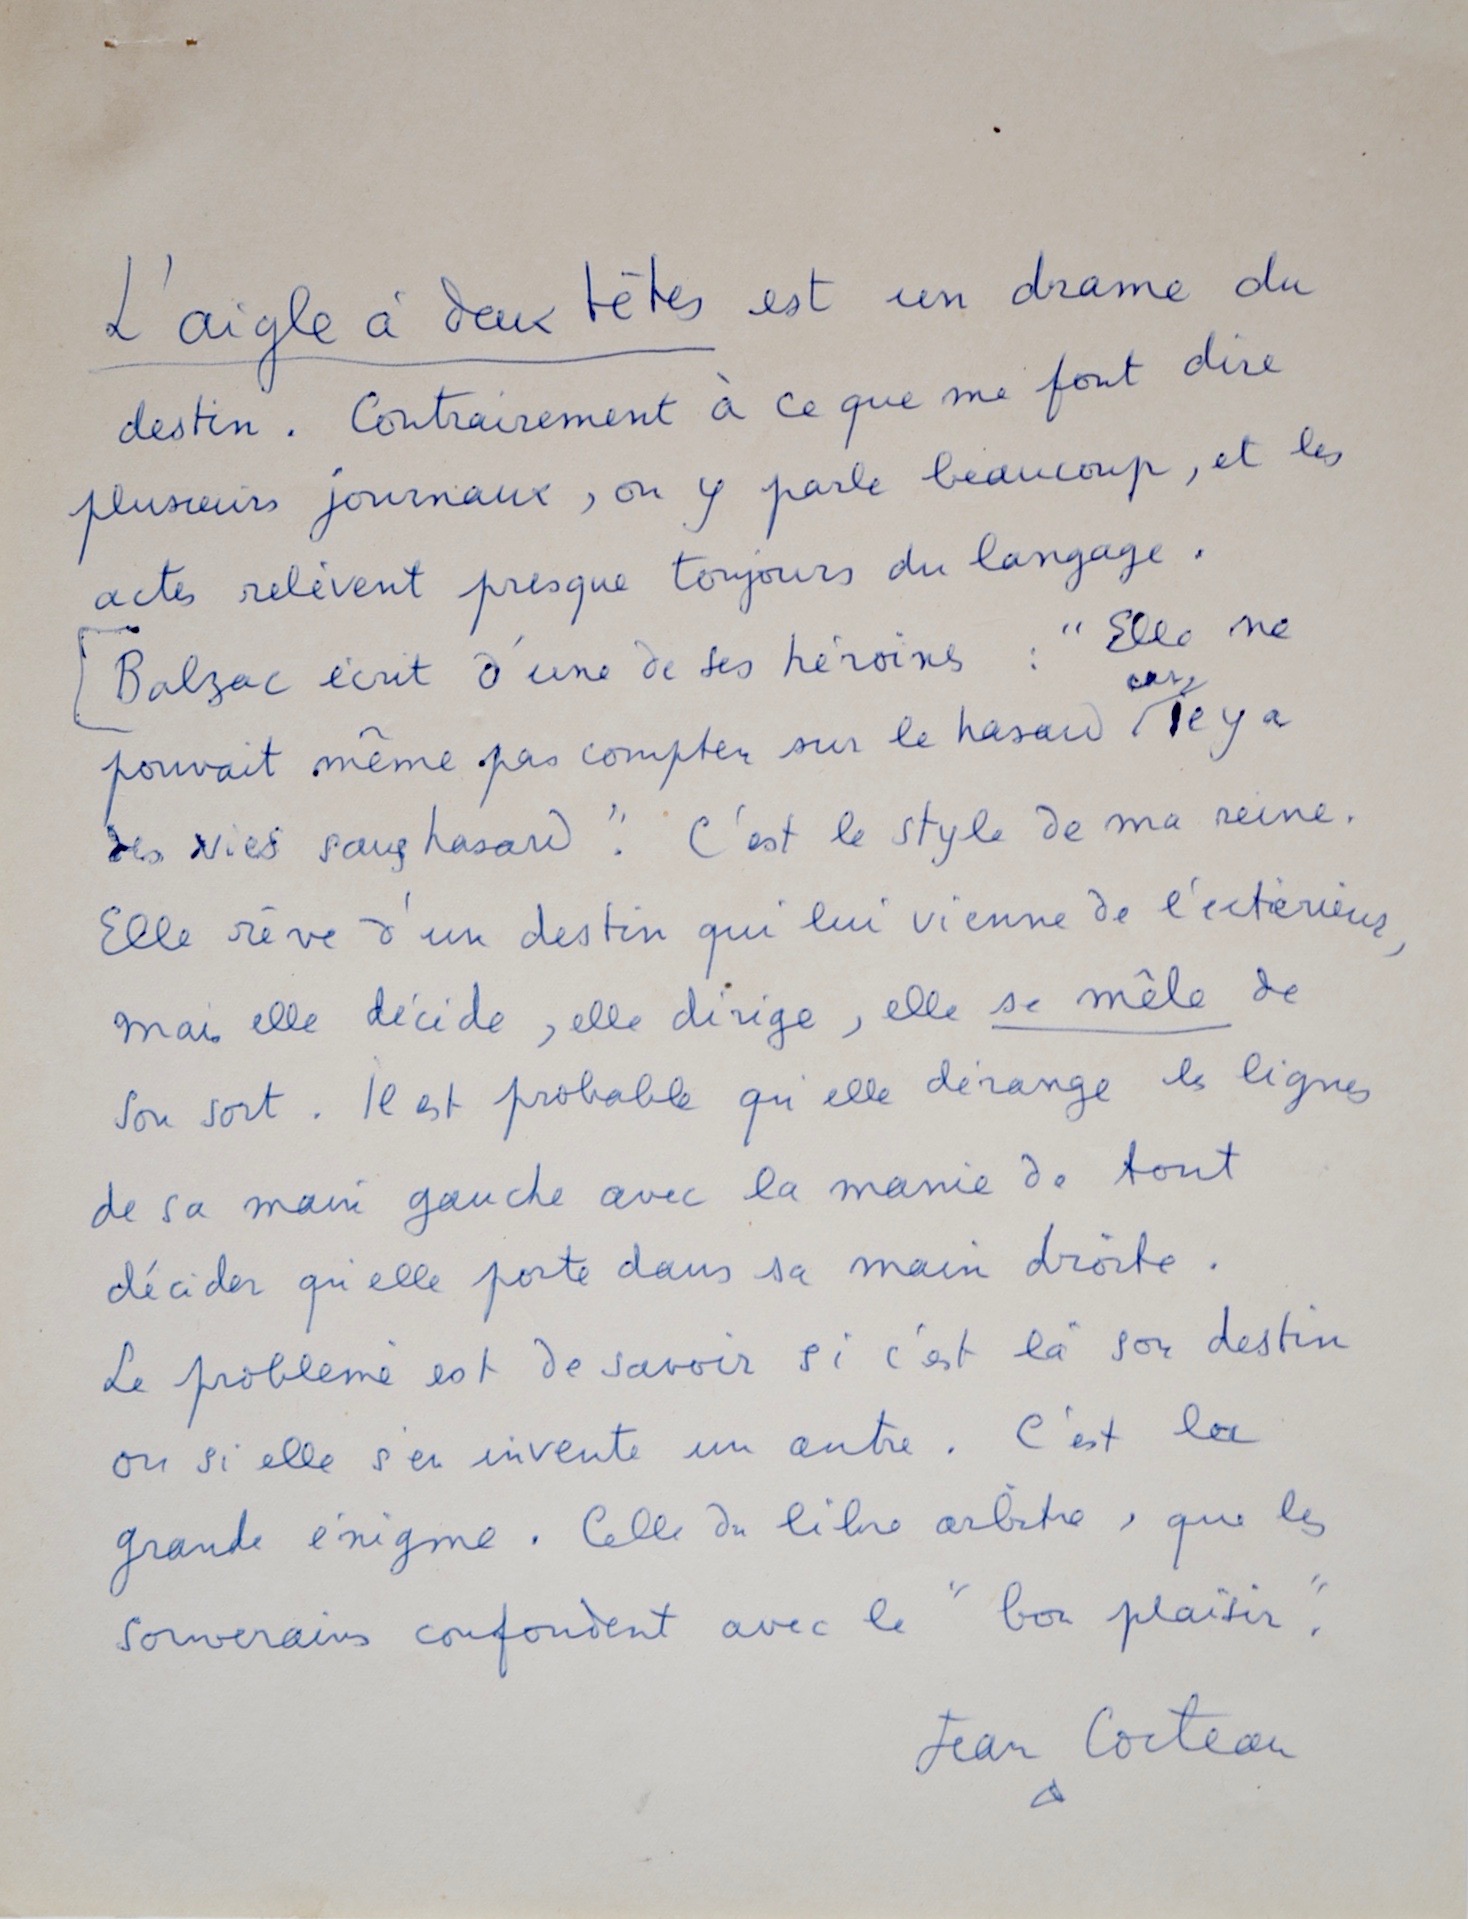 L'aigle à deux têtes est un drame du
destin. Contrairement à ce que me font dire
plusieurs journaux, on y parle beaucoup, et les
actes relèvent presque toujours du langage.
[Balzac écrit d'une de ses héroïnes : "Elle ne
pouvait même pas compter sur le hasard car, il y a
des vies sans hasard". C'est le style de ma reine.
Elle rêve d'un destin qui lui vienne de l'extérieur,
mais elle décide, elle dirige, elle se mêle de
son sort. Il est probable qu'elle dérange les lignes
de sa main gauche avec la manie de tout
décider qu'elle porte dans sa main droite.
Le problème est de savoir si c'est là son destin
ou si elle s'en invente un autre. C'est la
grande énigme. Celle du libre arbitre, que les
souverains confondent avec le "bon plaisir".
Jean Cocteau